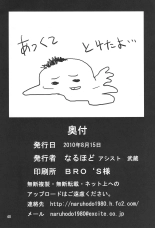 あっくて
とけたよ…
奥付
発行日　2010年8月15日
発行者　なるほど アシスト 武蔵
印刷所　ＢＲＯ'Ｓ様
無断複製・無断転載・ネット上への
アップロードはご遠慮ください。
連絡先　http://naruhodo1980.h.fc2.com/
メール　naruhodo1980@excite.co.jp